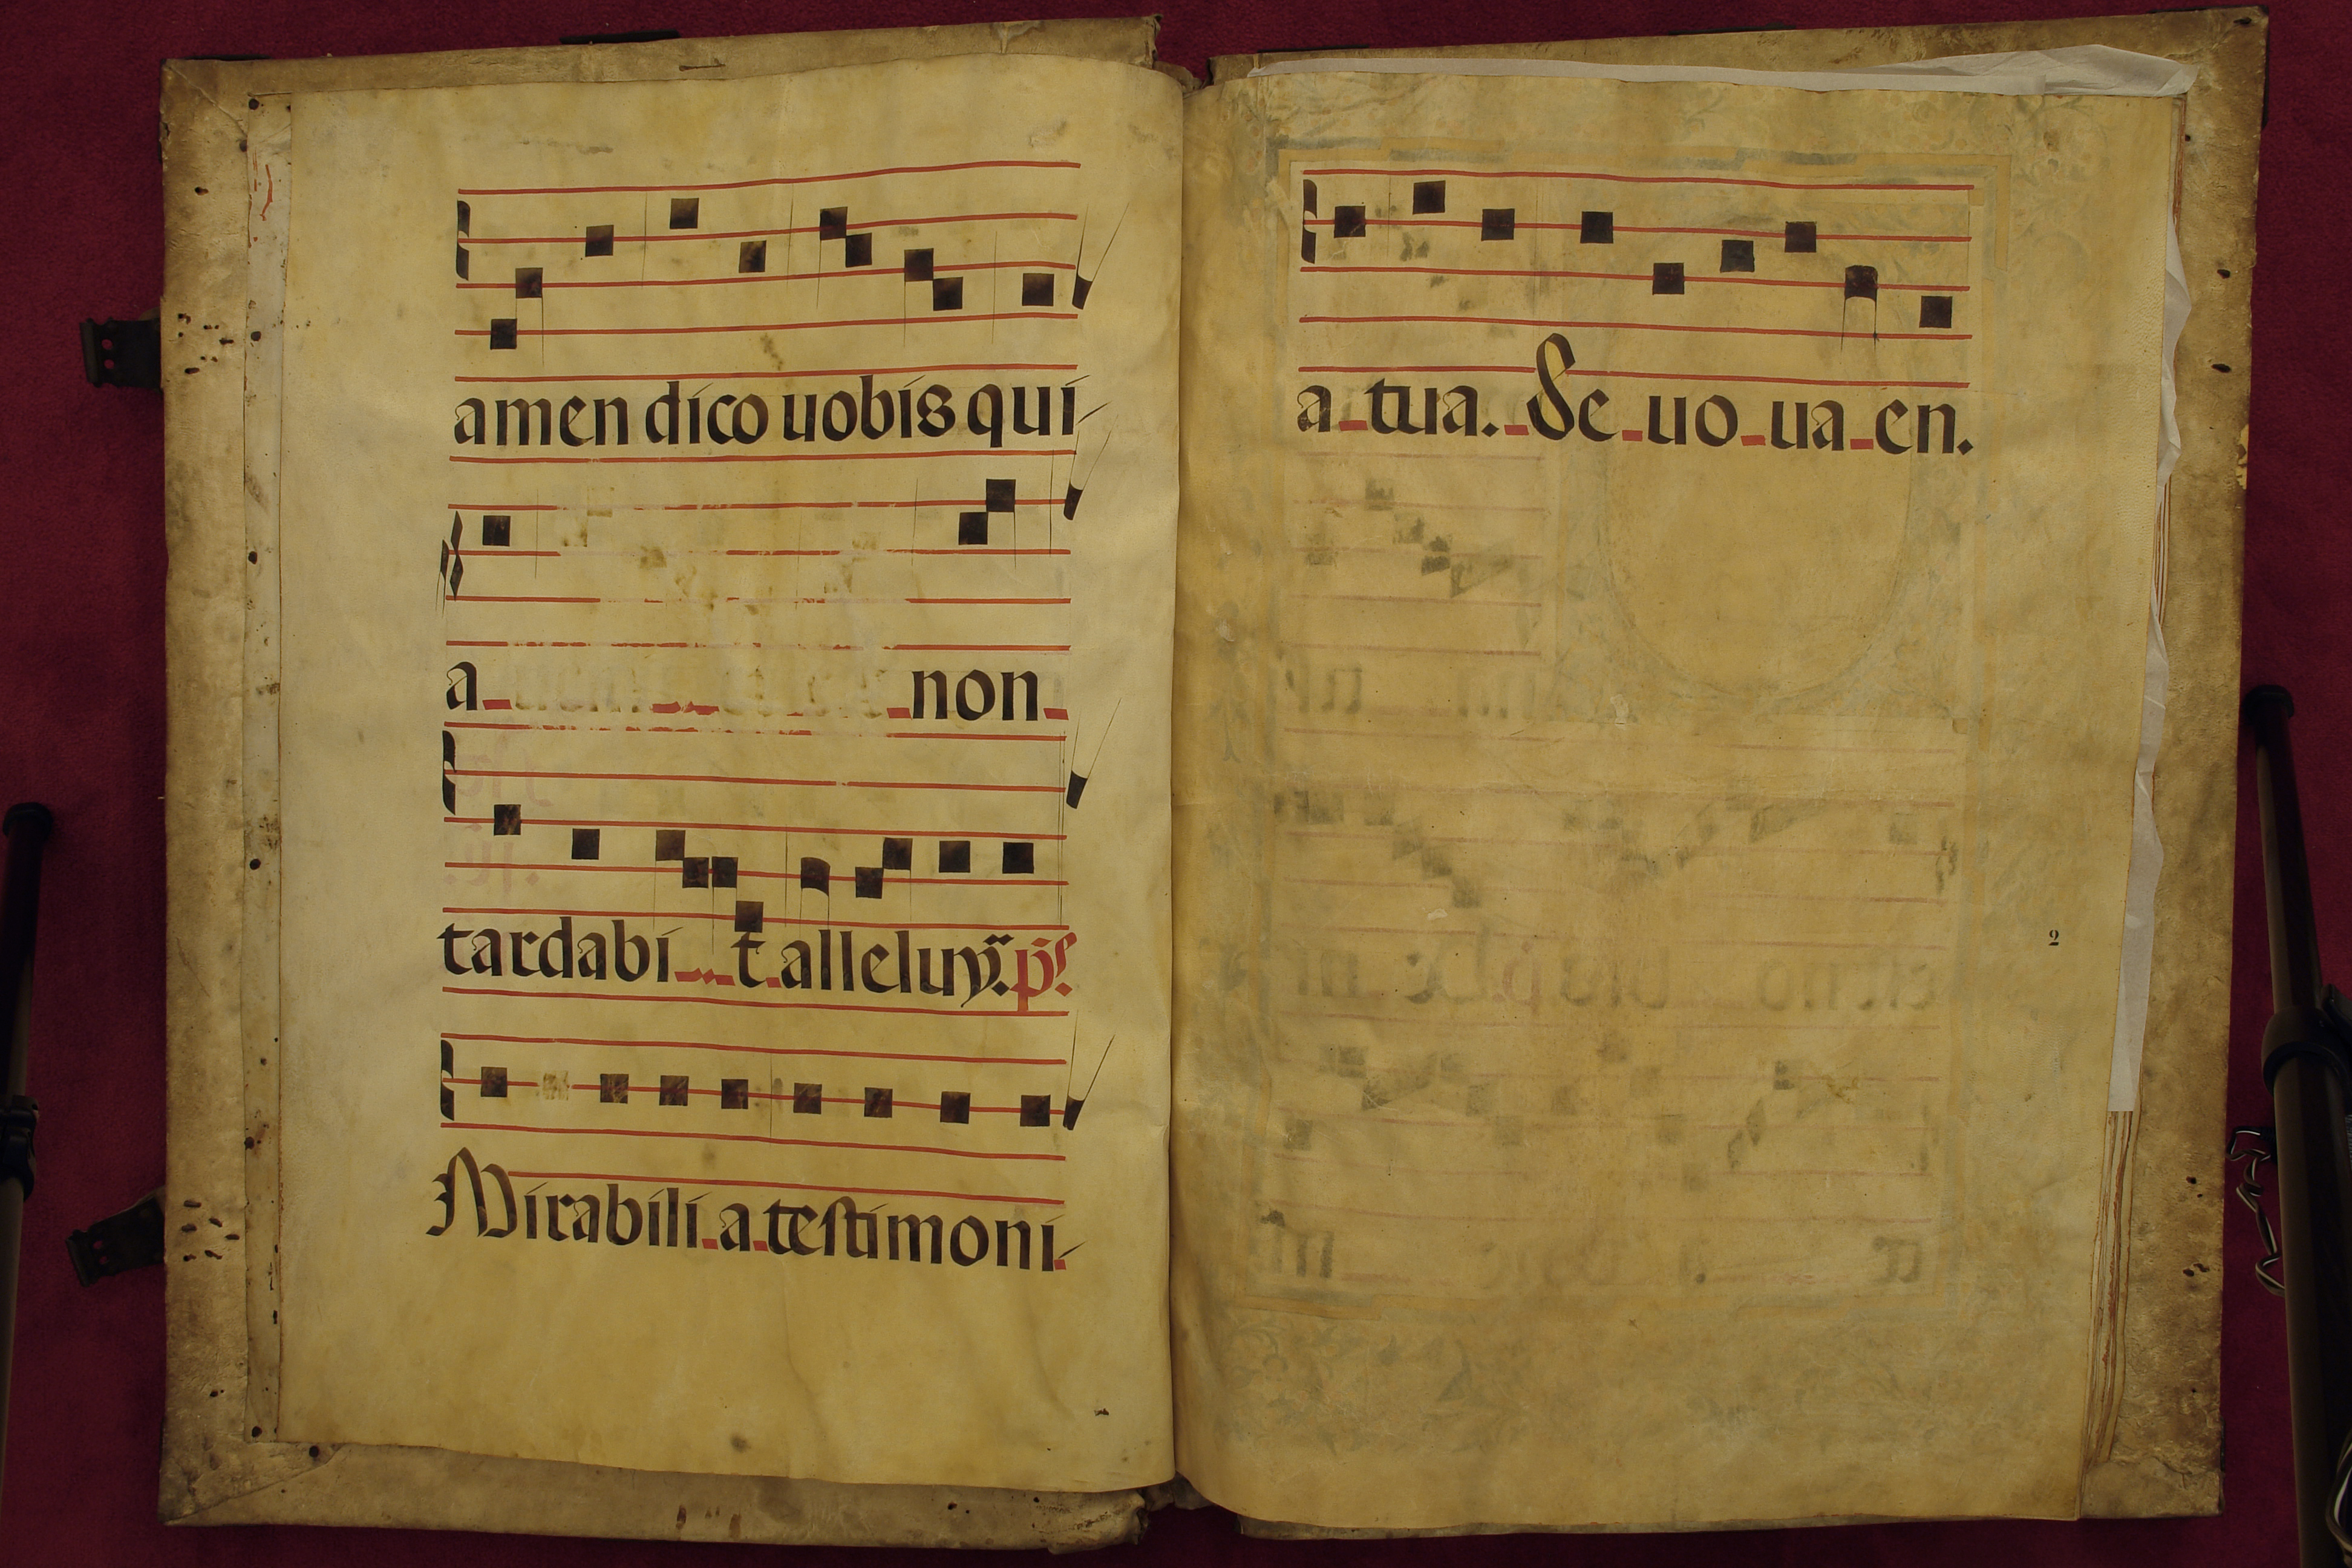 amen dico uobis qui
a non
tardabi t. alleluya. ps.
Mirabili a testimoni
a tua. Se uo ua en.
2